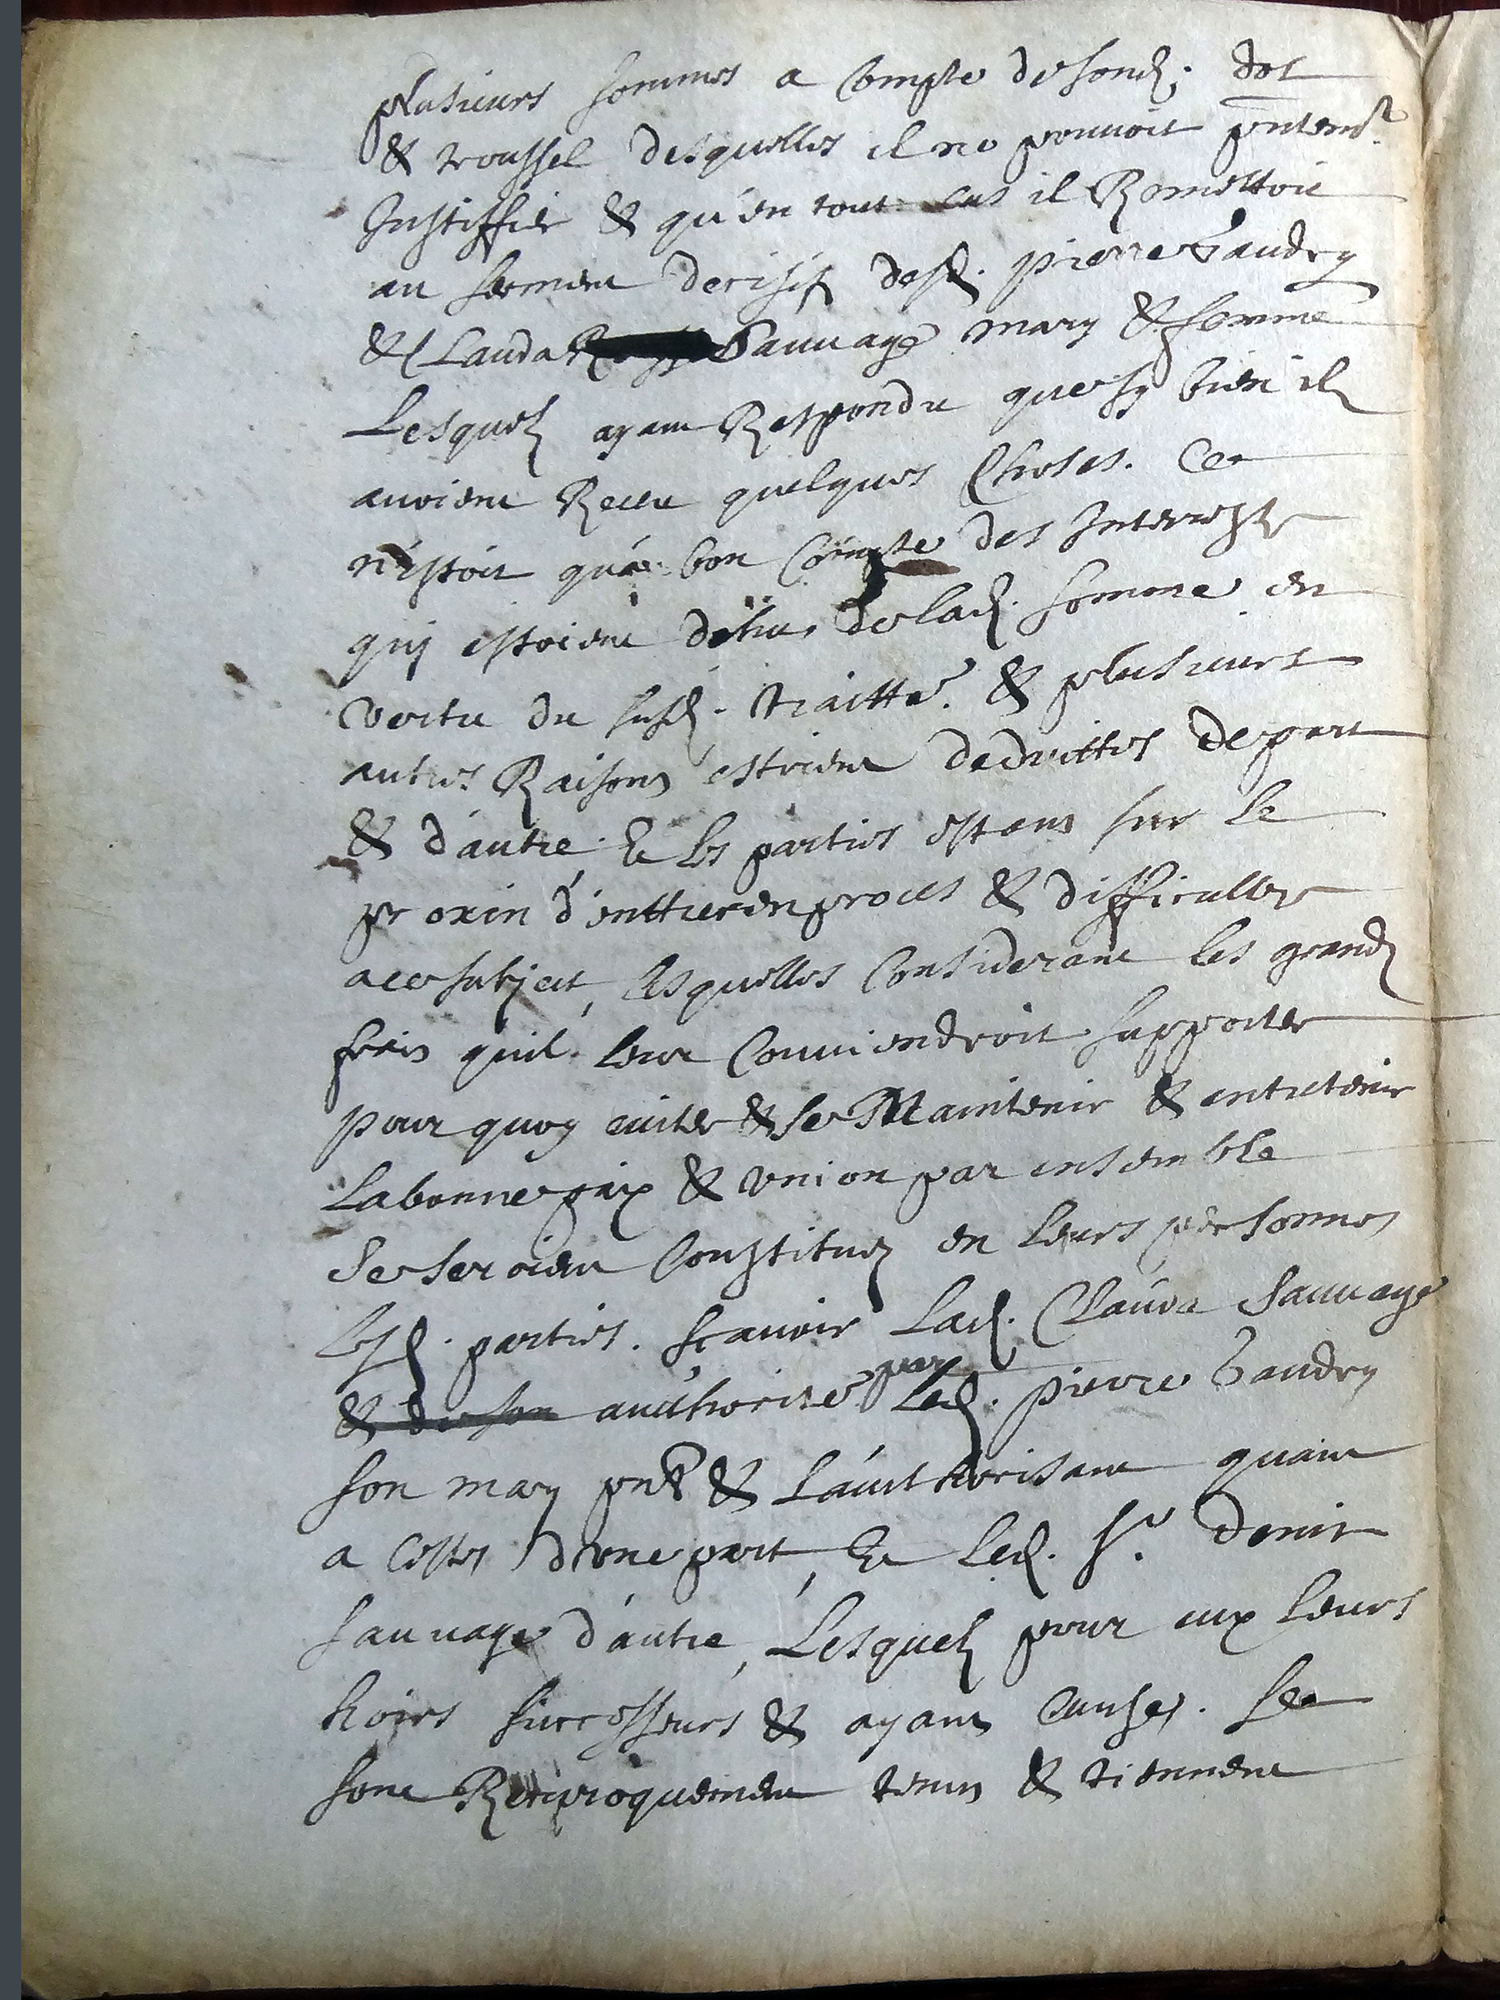 plusieurs sommes a Compte de sond. dot
& troussel desquelles il ne pouvoit pntemt.
Justiffier & qu'en tout cas il Remettoit
au serment decisif desd. pierre Gaudry
& Clauda Sauuage mary & femme
Lesquelz ayant Respondu que sy bien ilz
auoient Receu quelques Choses. Ce
n'estoit qu'a bon Compte des Interestz
quj estoient deheus de lad. somme en
vertu du susd. traitté. & plusieurs
autres Raisons estoient deduittes de part
& d'autre. Et les parties estans sur le
proxin d'enttrer en proces & difficultez
a ce subject, Lesquelles Considerant les grandz
frais quil. leur Conuiendroit supporter
pour quoy euiter & se Maintenir & entretenir
La bonne paix & vnion par ensemble
Se seroient Constituez en leurs personnes
Lesd. parties. sçauoir Lad. Clauda Sauuage
& de son authorité par Led. pierre Gaudry
son mary pnt & L'aucthorisant quant
a Cestes d'vne part, Et Led. Sr. denis
Sauuage d'autre, Lesquelz pour eux Leurs
hoirs successeurs & ayans Causes. se
sont Reciproquement tenus & tiennent